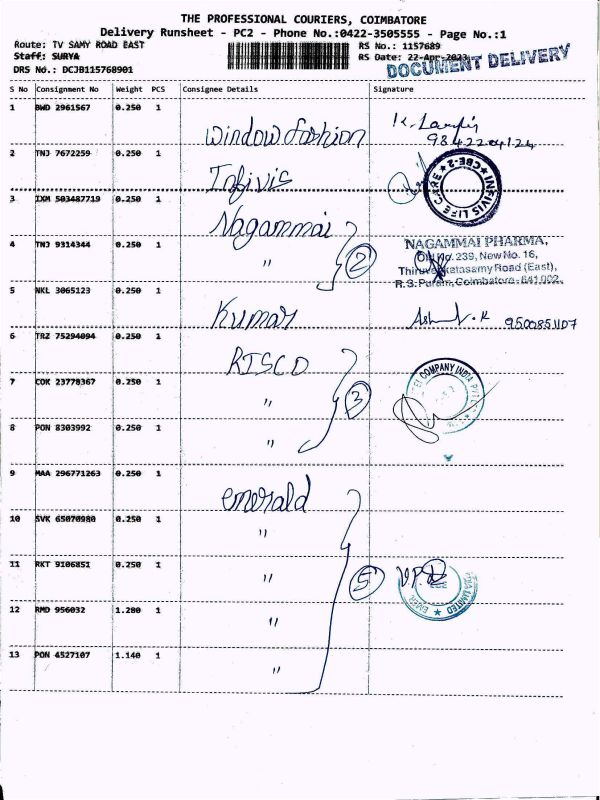 THE PROFESSIONAL COURIERS, COIMBATORE
Delivery Runsheet - PC2 - Phone No.:0422-3505555 - Page No.:1
Route: TV SAMY ROAD EAST
RS No.: 1157689
Staff: SURYA
RS Date: 22-Apr-2023
DRS No.: DCJB115768901
DOCUMENT DELIVERY
S No Consignment No Weight PCS Consignee Details Signature
1 BWD 2961567 0.250 1 Window fashion
9842204124
2 TNJ 7672259 0.250 1 Infivis
INFIVIS LIFE CARE ★ CBE-2 ★
3 IXM 503487719 0.250 1 Nagammai
4 TNJ 9314344 0.250 1 " 2
NAGAMMAI PHARMA,
Old No. 239, New No. 16,
Thiruvenkatasamy Road (East),
R.S. Puram, Coimbatore - 641 002.
5 NKL 3065123 0.250 1 Kumar
9500851107
6 TRZ 75294094 0.250 1 RISCO
7 COK 23778367 0.250 1 " 3
COMPANY INDIA
8 PON 8303992 0.250 1 "
9 MAA 296771263 0.250 1 emerald
10 SVK 65070980 0.250 1 "
11 RKT 9106851 0.250 1 " 5
LIMITED ★
12 RMD 956032 1.280 1 "
13 PON 4527107 1.140 1 "